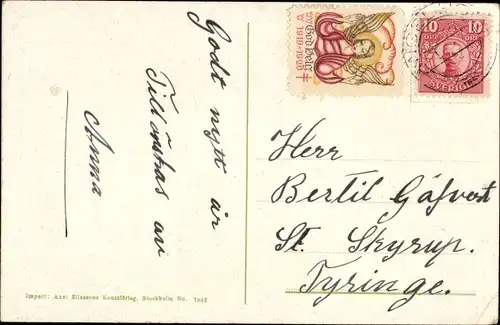 Godt nytt år
Tillönskas av
Anna
God Jul
1919-1920
10 10
SVERIGE
Herr
Bertil Gäfvert
St. Skyrup.
Tyringe.
Import: Axel Eliassons Konstförlag, Stockholm No. 7842